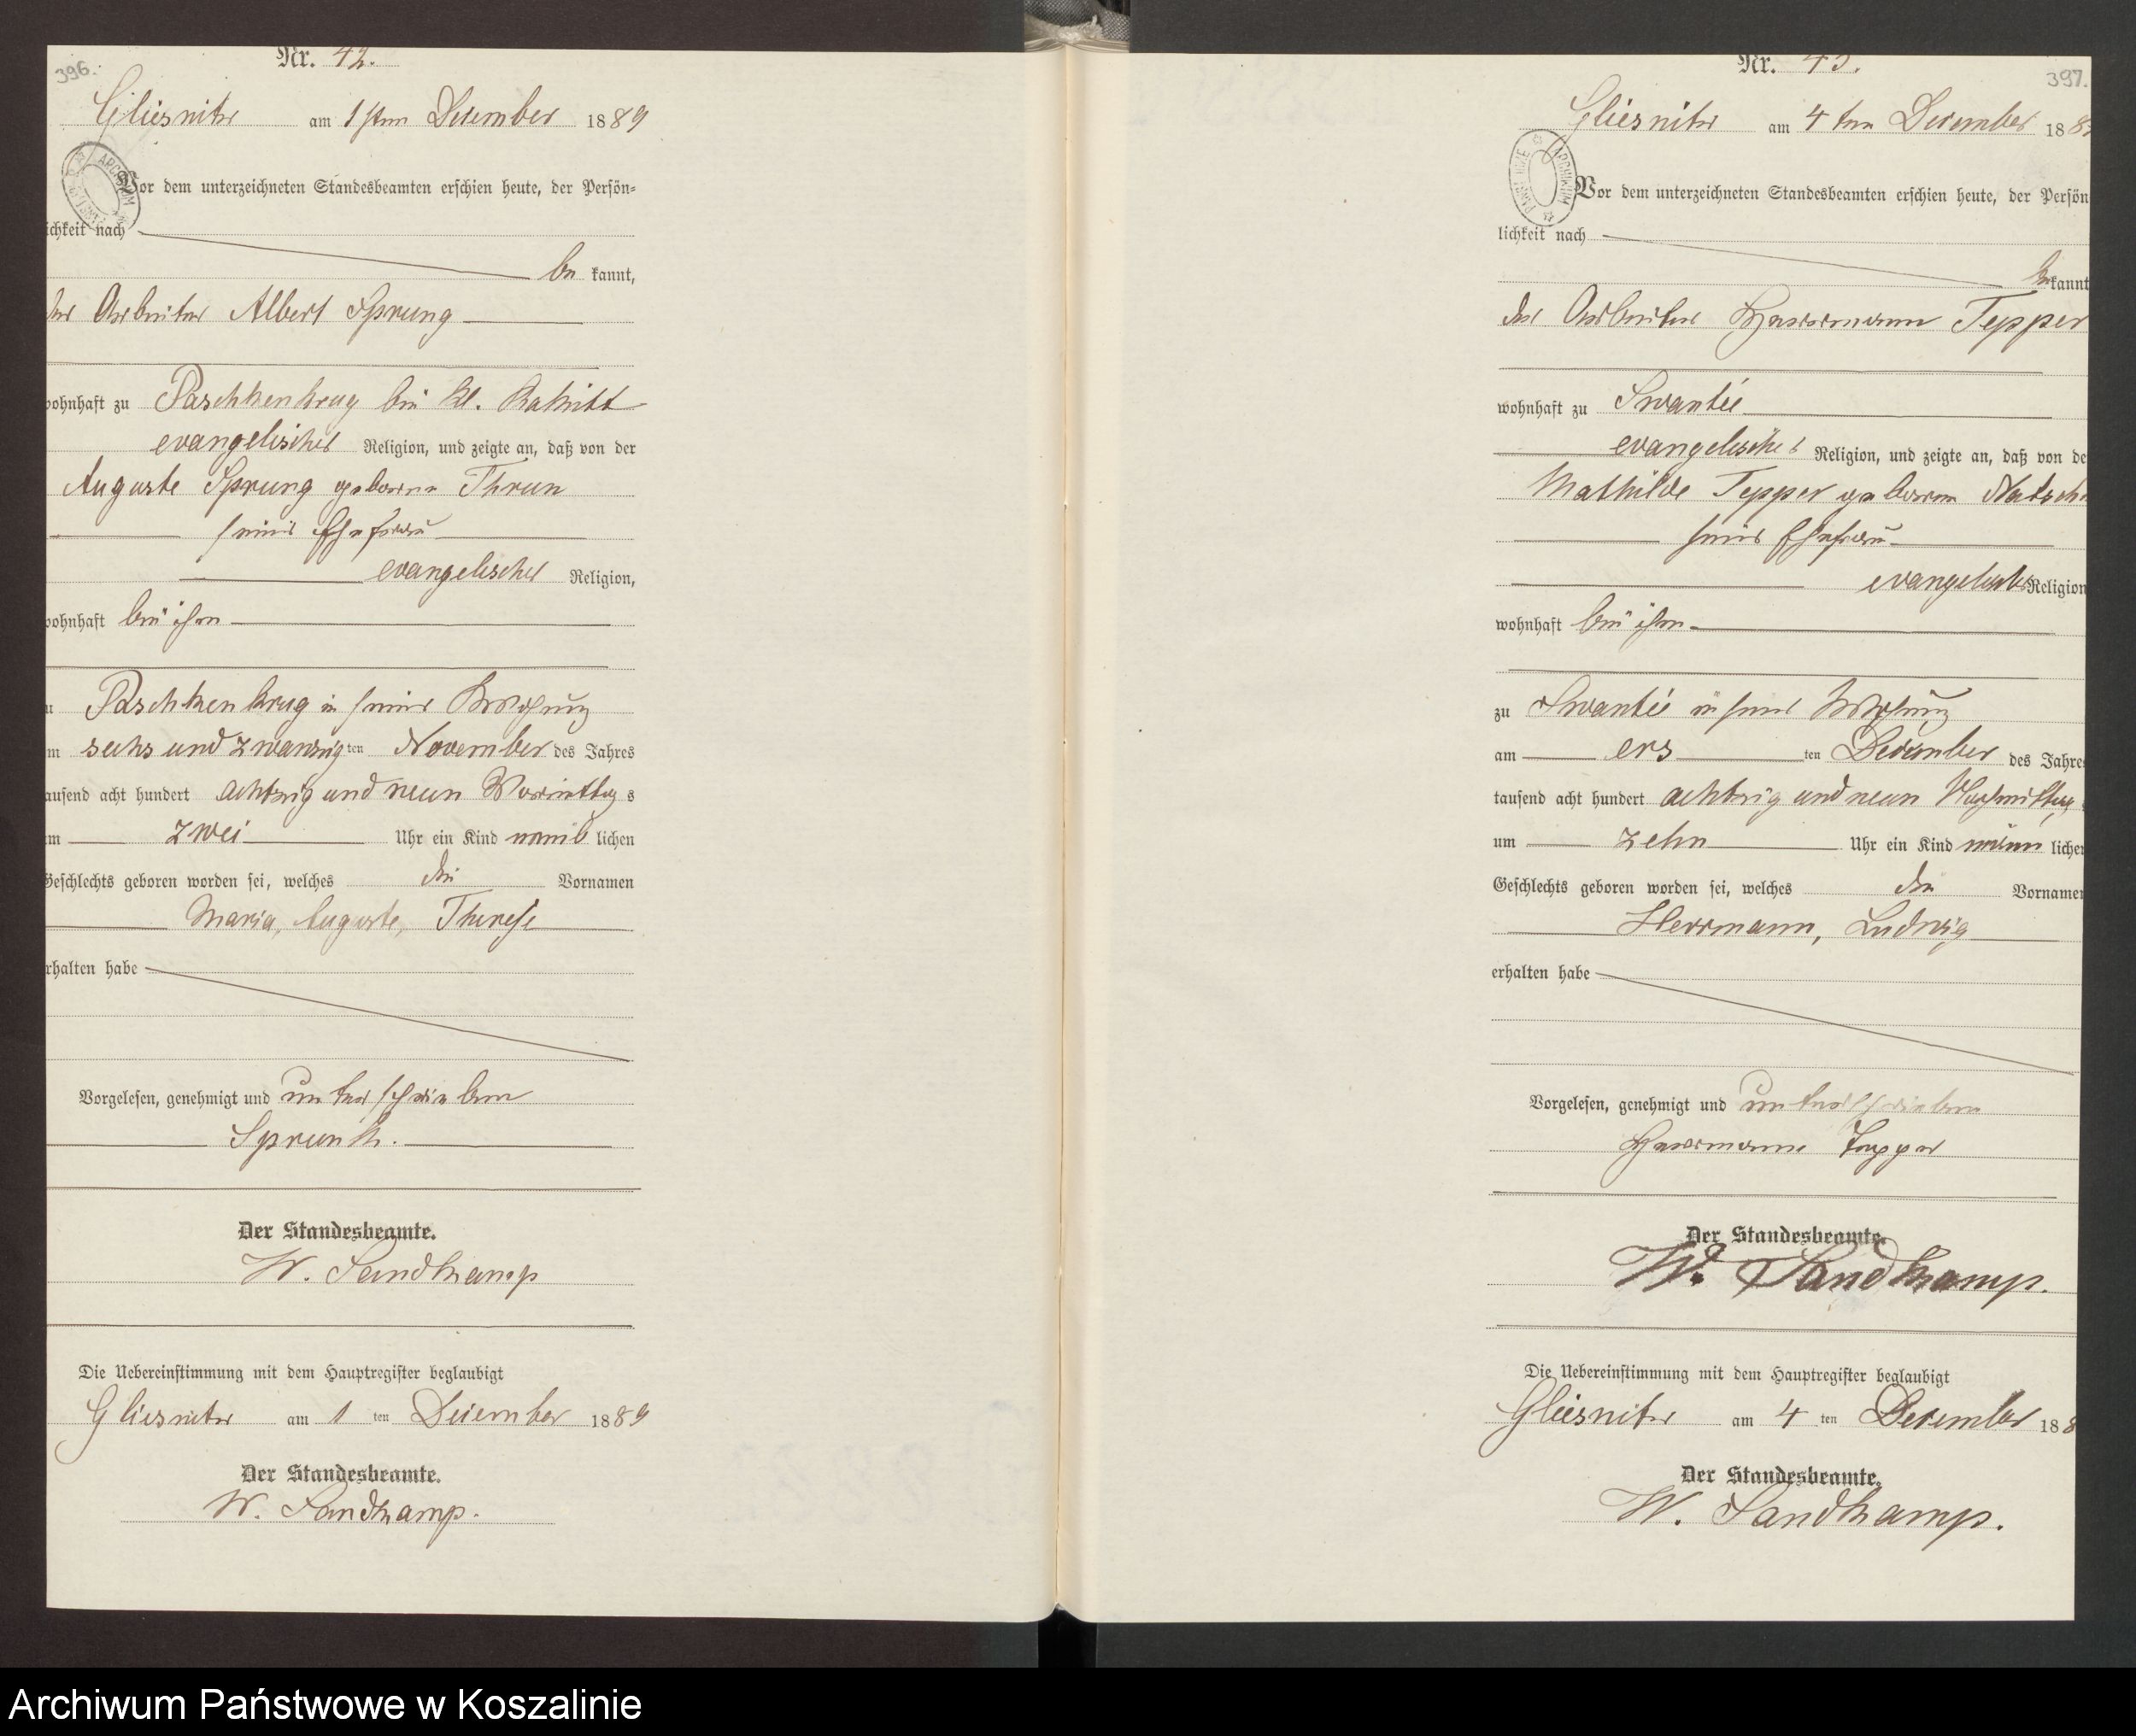 396.
Nr. 42.
Gliesnitz am 1sten December 1889
Vor dem unterzeichneten Standesbeamten erschien heute, der Persön-
ichkeit nach
be kannt,
der Arbeiter Albert Sprung
wohnhaft zu Paschkenkrug bei Kl.
evangelischer Religion, und zeigte an, daß von der
Auguste Sprung geborene Thrun
seiner Ehefrau
evangelischer Religion,
wohnhaft bei ihm
zu Paschkenkrug in seiner Wohnung
am sechs und zwanzig ten November des Jahres
tausend acht hundert achtzig und neun Vormittag s
um zwei Uhr ein Kind weib lichen
Geschlechts geboren worden sei, welches die Vornamen
Maria, Auguste, Therese
erhalten habe
Vorgelesen, genehmigt und unterschrieben
Sprunk.
Der Standesbeamte.
W. Sandkamp
Die Uebereinstimmung mit dem Hauptregister beglaubigt
Gliesnitz am 1 ten December 1889
Der Standesbeamte.
W. Sandkamp.
397.
Nr. 43.
Gliesnitz am 4ten December 188
Vor dem unterzeichneten Standesbeamten erschien heute, der Persön
lichkeit nach
be kannt
der Arbeiter Herrmann Tepper
wohnhaft zu Swantee
evangelischer Religion, und zeigte an, daß von de
Mathilde Tepper geborene
seiner Ehefrau
evangelischer Religion
wohnhaft bei ihm
zu Swantee in seiner Wohnung
am ers ten December des Jahre
tausend acht hundert achtzig und neun Nachmittag
um zehn Uhr ein Kind männ licher
Geschlechts geboren worden sei, welches die Vornamen
Herrmann, Ludwig
erhalten habe
Vorgelesen, genehmigt und unterschrieben
Herrmann Tepper
Der Standesbeamte.
W. Sandkamp.
Die Uebereinstimmung mit dem Hauptregister beglaubigt
Gliesnitz am 4 ten December 188
Der Standesbeamte.
W. Sandkamp.
Archiwum Państwowe w Koszalinie